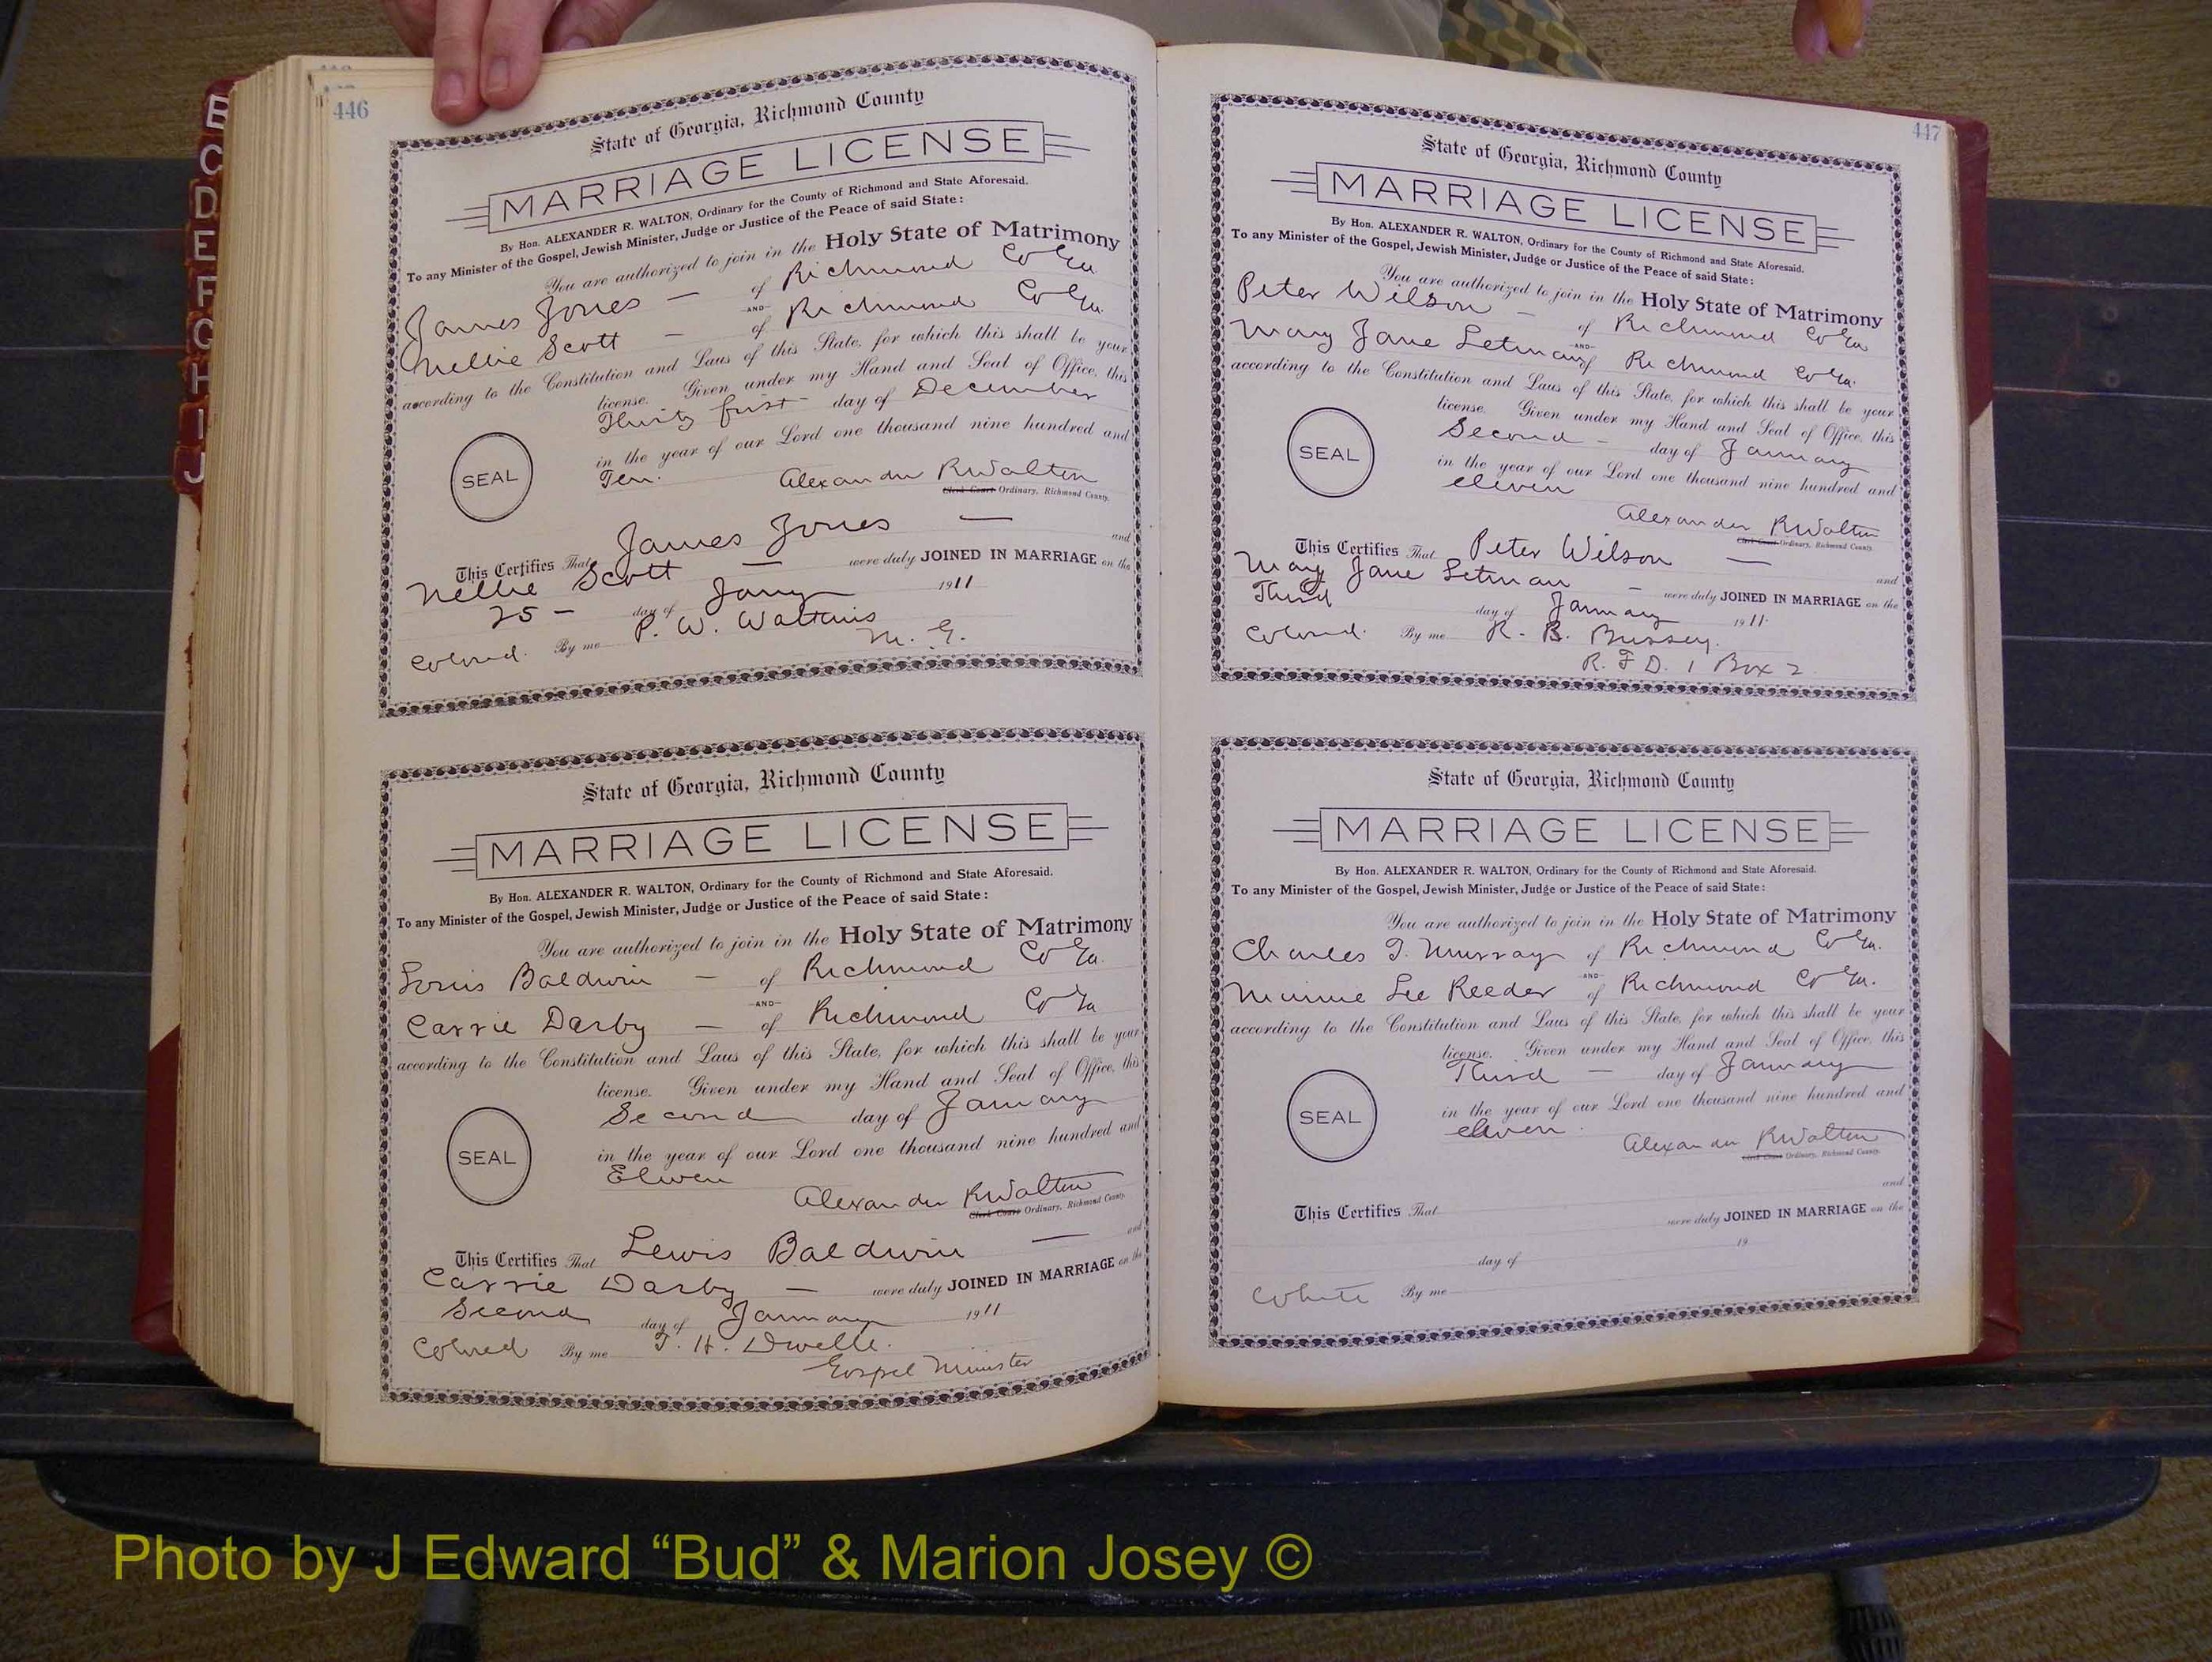 B
C
D
E
F
G
H
I
J
446
State of Georgia, Richmond County
MARRIAGE LICENSE
By Hon. ALEXANDER R. WALTON, Ordinary for the County of Richmond and State Aforesaid.
To any Minister of the Gospel, Jewish Minister, Judge or Justice of the Peace of said State:
You are authorized to join in the Holy State of Matrimony
James Jones — of Richmond Co Ga
-AND-
Nellie Scott — of Richmond Co Ga.
according to the Constitution and Laws of this State, for which this shall be your
license. Given under my Hand and Seal of Office, this
Thirty first day of December
SEAL
in the year of our Lord one thousand nine hundred and
Ten.
Alexander R Walton
Clerk Court Ordinary, Richmond County.
This Certifies That James Jones — and
Nellie Scott — were duly JOINED IN MARRIAGE on the
25 — day of Jany 1911
Colored. By me P. W. Watkins
M. G.
State of Georgia, Richmond County
MARRIAGE LICENSE
By Hon. ALEXANDER R. WALTON, Ordinary for the County of Richmond and State Aforesaid.
To any Minister of the Gospel, Jewish Minister, Judge or Justice of the Peace of said State:
You are authorized to join in the Holy State of Matrimony
Louis Baldwin — of Richmond Co Ga.
-AND-
Carrie Darby — of Richmond Co Ga
according to the Constitution and Laws of this State, for which this shall be your
license. Given under my Hand and Seal of Office, this
Second day of January
SEAL
in the year of our Lord one thousand nine hundred and
Eleven
Alexander R Walton
Clerk Court Ordinary, Richmond County.
This Certifies That Lewis Baldwin — and
Carrie Darby — were duly JOINED IN MARRIAGE on the
Second day of January 1911
Colored By me T. H. Dwelle.
Gospel Minister
447
State of Georgia, Richmond County
MARRIAGE LICENSE
By Hon. ALEXANDER R. WALTON, Ordinary for the County of Richmond and State Aforesaid.
To any Minister of the Gospel, Jewish Minister, Judge or Justice of the Peace of said State:
You are authorized to join in the Holy State of Matrimony
Peter Wilson — of Richmond Co Ga
-AND-
Mary Jane Letman of Richmond Co Ga.
according to the Constitution and Laws of this State, for which this shall be your
license. Given under my Hand and Seal of Office, this
Second — day of January
SEAL
in the year of our Lord one thousand nine hundred and
eleven
Alexander R Walton
Clerk Court Ordinary, Richmond County.
This Certifies That Peter Wilson — and
Mary Jane Letman — were duly JOINED IN MARRIAGE on the
Third day of January 1911.
Colored. By me R. B. Bussey.
R. F D. 1 Box 2
State of Georgia, Richmond County
MARRIAGE LICENSE
By Hon. ALEXANDER R. WALTON, Ordinary for the County of Richmond and State Aforesaid.
To any Minister of the Gospel, Jewish Minister, Judge or Justice of the Peace of said State:
You are authorized to join in the Holy State of Matrimony
Charles Murray of Richmond Co Ga.
-AND-
Minnie Lee Reeder of Richmond Co Ga.
according to the Constitution and Laws of this State, for which this shall be your
license. Given under my Hand and Seal of Office, this
Third — day of January
SEAL
in the year of our Lord one thousand nine hundred and
eleven.
Alexander R Walton
Clerk Court Ordinary, Richmond County.
This Certifies That and
were duly JOINED IN MARRIAGE on the
day of 19
White By me
Photo by J Edward “Bud” & Marion Josey ©